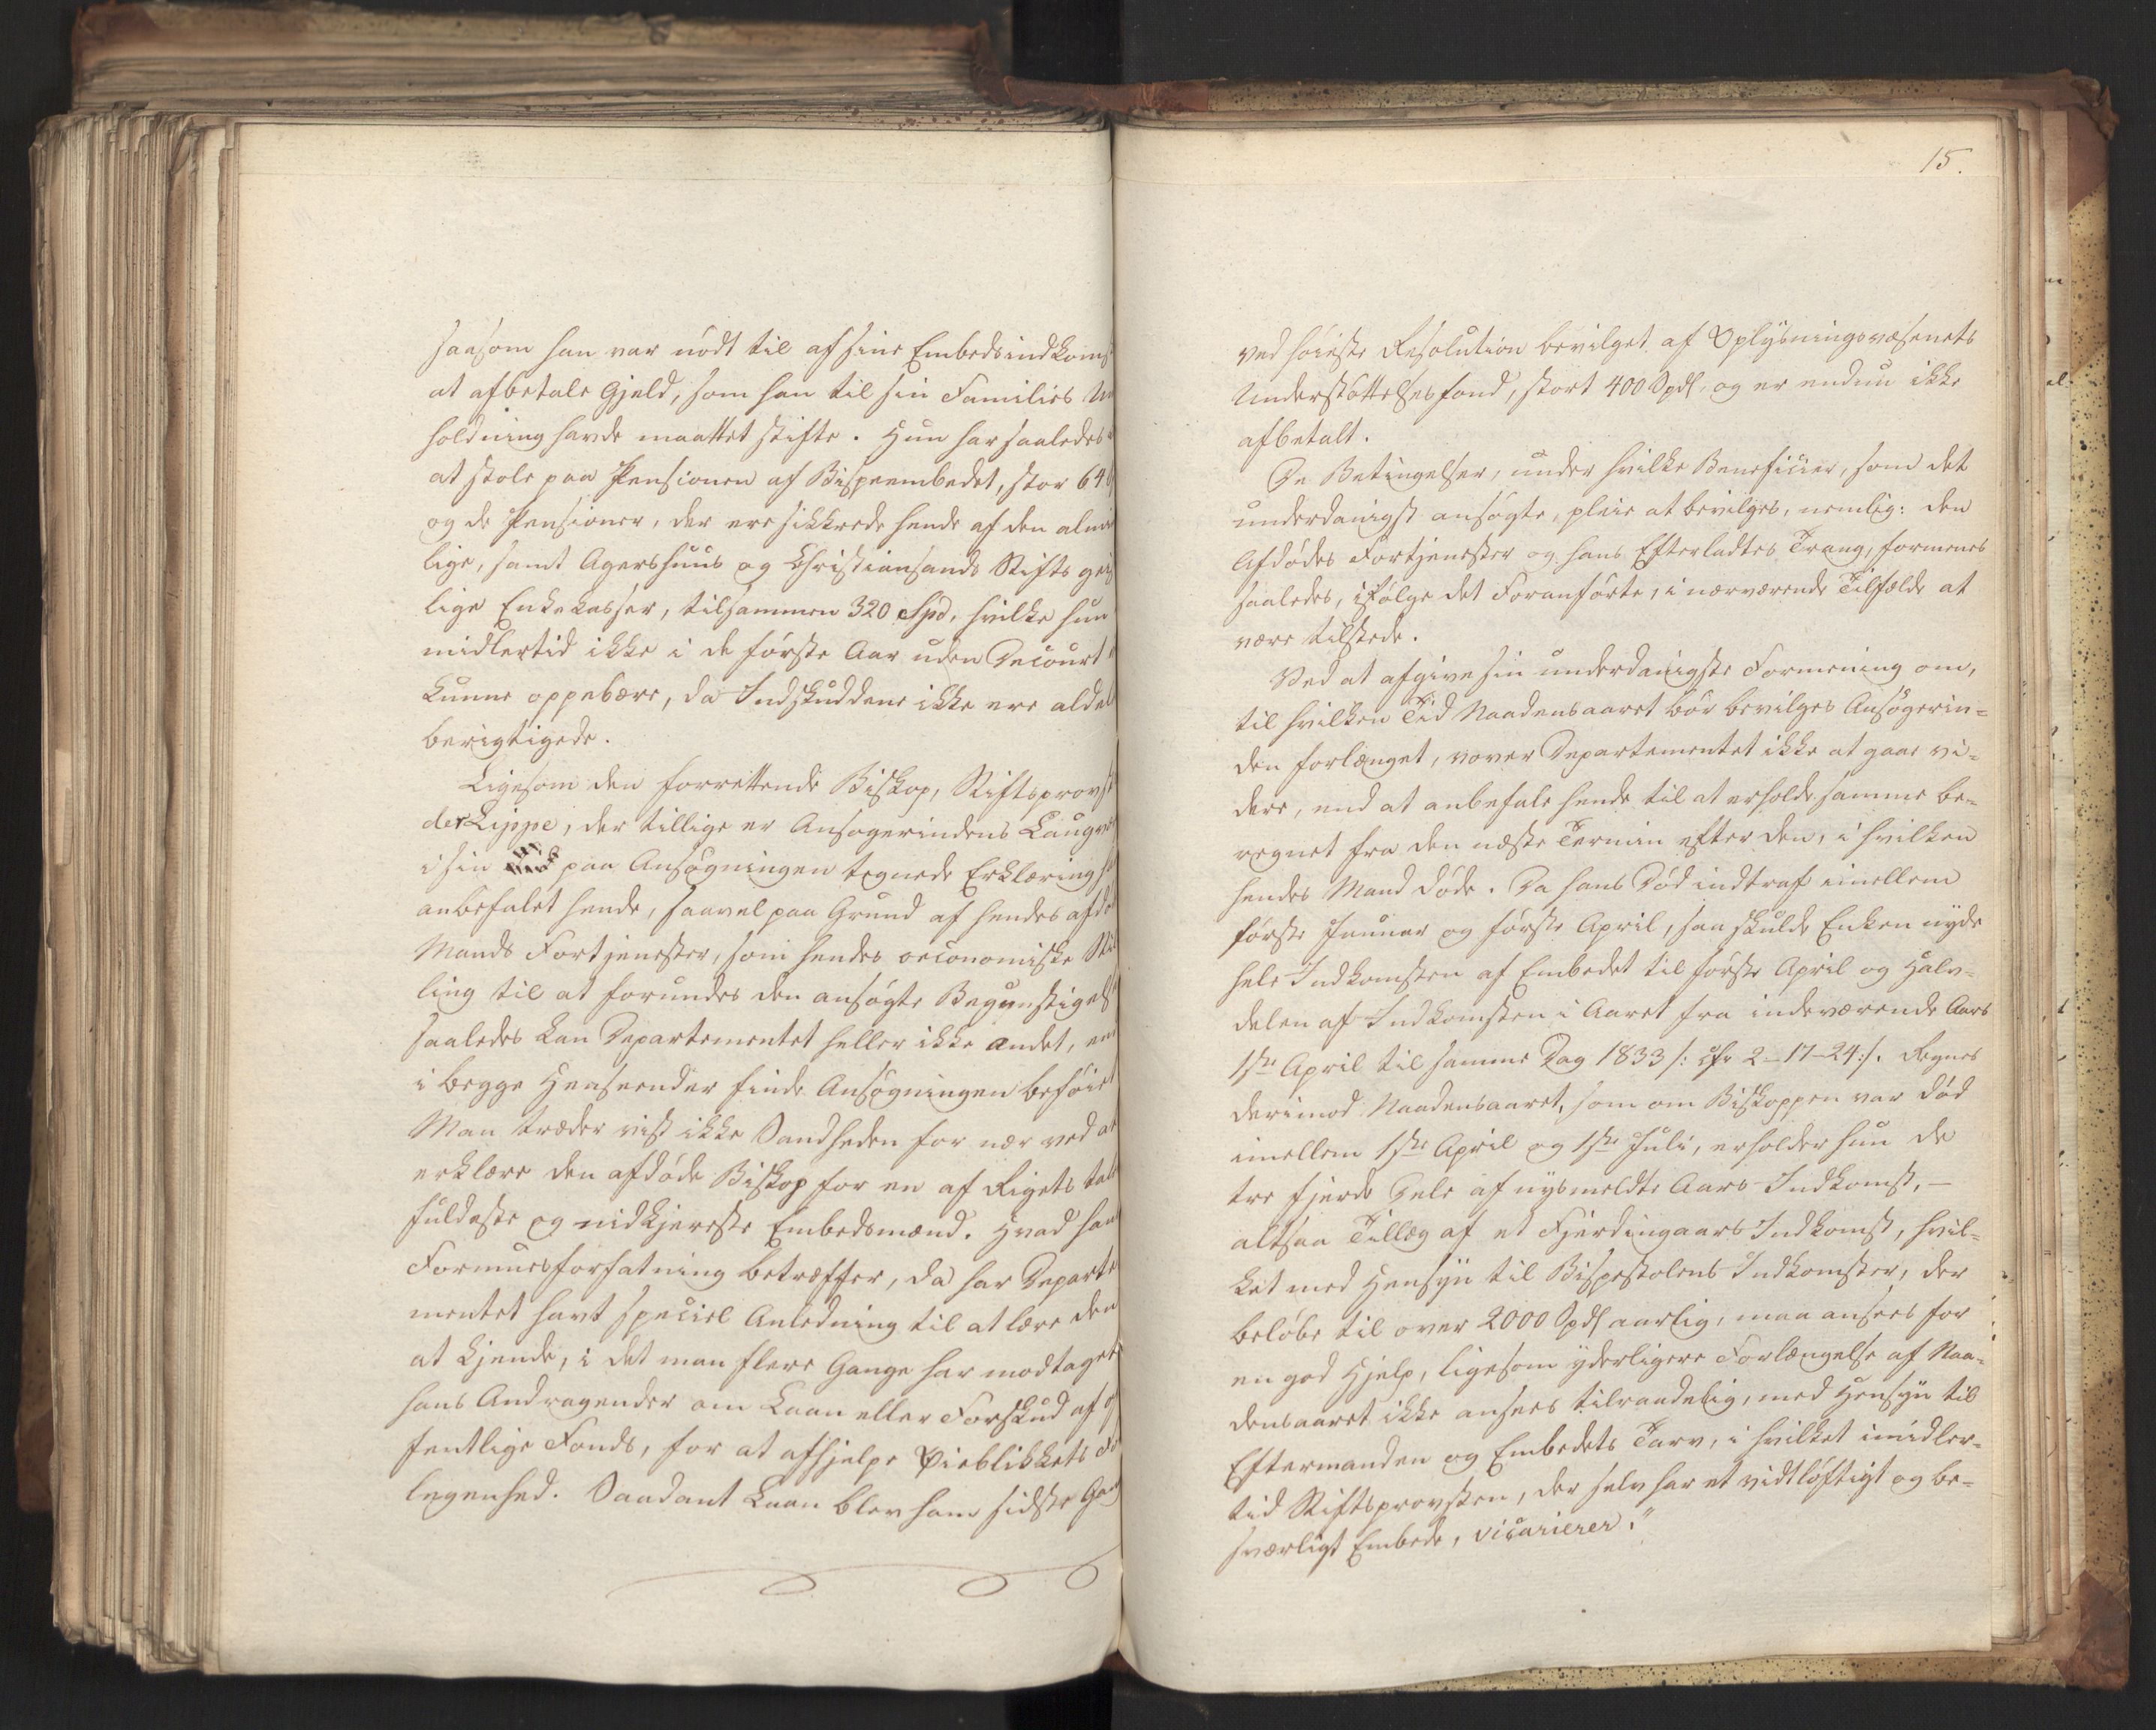 saasom han var nødt til af sine Embedsindkoms
at afbetale Gjeld, som han til sin Families Un
holdning havde maattet stifte. Hun har saaledes
at stole paa Pensionen af Bispeembedet, stor 64
og de Pensioner, der ere sikkrede hende af den almi
lige, samt Agershuus og Christiansands Stifts gei
lige Enkekasser, tilsammen 320 Spd, hvilke hun
midlertid ikke i de første Aar uden Decourt
kunne oppebære, da Indskuddene ikke ere aldel
berigtigede.
Ligesom den forrettende Biskop, Stiftsprovst
der Lippe, der tillige er Ansøgerindens Laugvæ
i sin paa Ansøgningen tegnede Erklæring h
anbefalet hende, saavel paa Grund af hendes afdø
Mands Fortjenester, som hendes oeconomiske Stil
ling til at forundes den ansøgte Begunstigelse
saaledes kan Departementet heller ikke andet, en
i begge Henseender finde Ansøgningen beføiet
Man træder vist ikke Sandheden for nær ved at
erklære den afdøde Biskop for en af Rigets tale
fuldeste og nidkjereste Embedsmænd. Hvad han
Formuesforfatning betræffer, da har Departe
mentet havt speciel Anledning til at lære den
at kjende, i det man flere Gange har modtaget
hans Andragender om Laan eller Forskud af of
fentlige Fonds, for at afhjelpe Øieblikkets Fo
legenhed. Saadant Laan blev ham sidste Gang
15.
ved høieste Resolution bevilget af Oplysningsvæsenets
Understøttelsesfond, stort 400 Spd, og er endnu ikke
afbetalt.
De Betingelser, under hvilke Beneficier, som det
underdanigst ansøgte, pleie at bevilges, nemlig: den
Afdødes Fortjenester og hans Efterladtes Trang, formenes
saaledes, ifølge det Foranførte, i nærværende Tilfælde at
være tilstede.
Ved at afgive sin underdanigste Formening om,
til hvilken Tid Naadensaaret bør bevilges Ansøgerin-
den forlænget, vover Departementet ikke at gaae vi-
dere, end at anbefale hende til at erholde samme be-
regnet fra den næste Termin efter den, i hvilken
hendes Mand døde. Da hans Død indtraf imellem
første Januar og første April, saa skulde Enken nyde
hele Indkomsten af Embedet til første April og Halv-
delen af Indkomsten i Aaret fra indeværende Aars
1ste April til samme Dag 1833 /: cfr 2-17-24:/. Regnes
derimod Naadensaaret, som om Biskoppen var død
imellem 1ste April og 1ste Juli, erholder hun de
tre fjerde Dele af nysmeldte Aars Indkomst, —
altsaa Tillæg af et Fjerdingaars Indkomst, hvil-
ket med Hensyn til Bispestolens Indkomster, der
beløbe til over 2000 Spd aarlig, maa ansees for
en god Hjelp, ligesom yderligere Forlængelse af Naa-
densaaret ikke ansees tilraadelig, med Hensyn til
Eftermanden og Embedets Tarv, i hvilket imidler-
tid Stiftsprovsten, der selv har et vidtløftigt og be-
sværligt Embede, vicarierer."